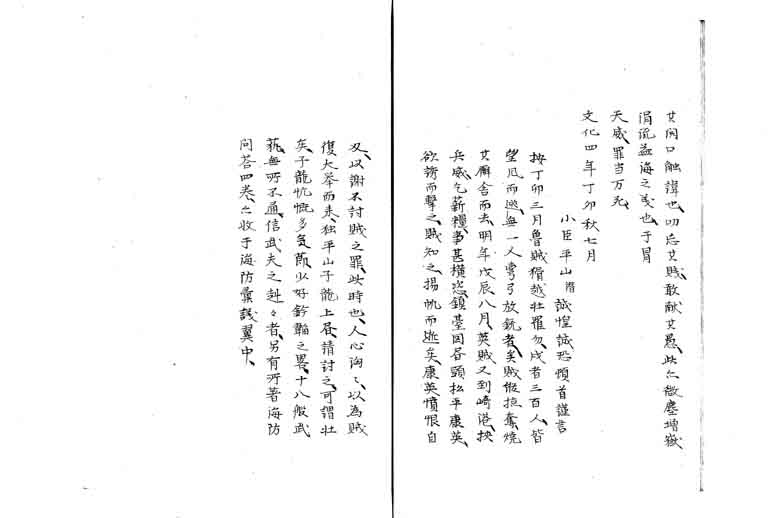 其闪口触諱也、叨忘其賎、敢献其愚、此亦微塵增嶽
涓流益海之义也、于冒
天威、罪当万死、
文化四年丁卯秋七月
小臣平山潛 誠惶誠恐頓首謹言
按丁卯三月魯賊猾越壮羅勿、戍者三百人、皆
望風而逃、無一人弯弓放銃者矣、賊假掠奪焼
其廨舎而去、明年戊辰八月、英賊又到崎港、挟
兵威乞薪糧、事甚横恣、鎮臺図各頭松平康英、
欲誘而撃之、賊知之、揚帆而逝矣、康英憤恨自
刃、以謝不討賊之罪、此時也、人心洶〻、以為賊
復大挙而来、独平山子龍上昼、請討之、可謂壮
矣、子龍忼慨多気節、少好鈐韜之畧、十八般武
藝、無所不通、信武夫之赳〻者、另有所著海防
问答四巻、亦收于海防彙議翼中、